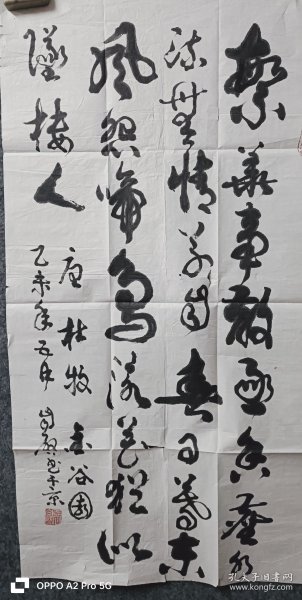 繁華事散逐香塵
流水無情草自春日暮东
風怨啼鳥落花猶似
墜楼人
唐杜牧 金谷園
乙未年五月 書于京
OPPO A2 Pro 5G
孔夫子旧书网
www.kongfz.com